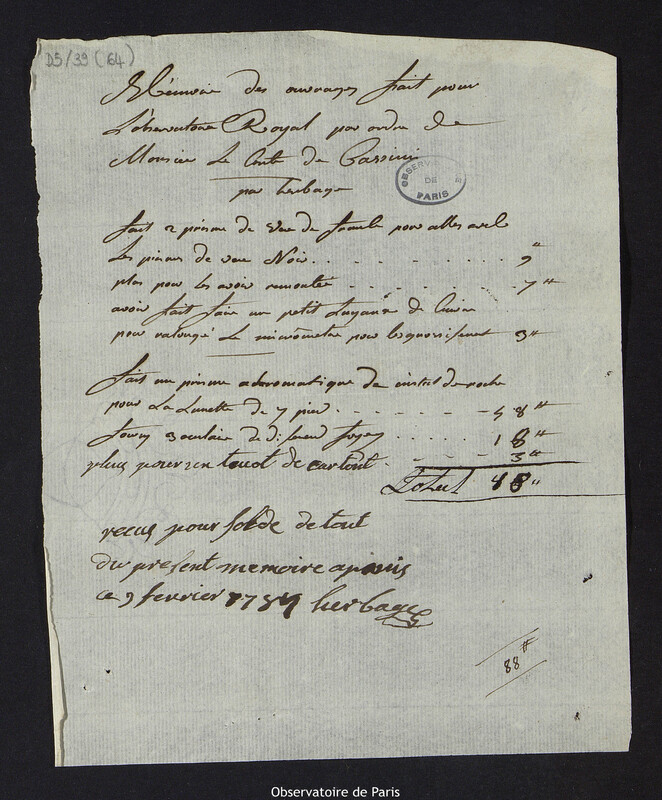 D5/39 (64)
Mémoire des ouvrages fait pour
L'observatoire Royal par ordre de
Monsieu Le Conte de Cassini
par herbage
OBSERV DE PARIS
fait 2 prisme de vere de pour alles avel
Les prismes de vere Noir . . . . . . . 9 ₶
plus pour les avoir remonté - - - - - 7 ₶
avoir fait faire un petit de Cuivre
pour ralongé Le micromètre pour 3 ₶
fait un prisme acromatique de cristal de roche
pour La Lunette de 7 pied . . . - - - 48 ₶
3 oculaire de diferend foyer . . . . . 18 ₶
plus pour un de cartont . - . . 3 ₶
Total 48 ₶
recus pour solde de tout
du present memoire aparis
ce 9 fevrier herbage
88 ₶
Observatoire de Paris